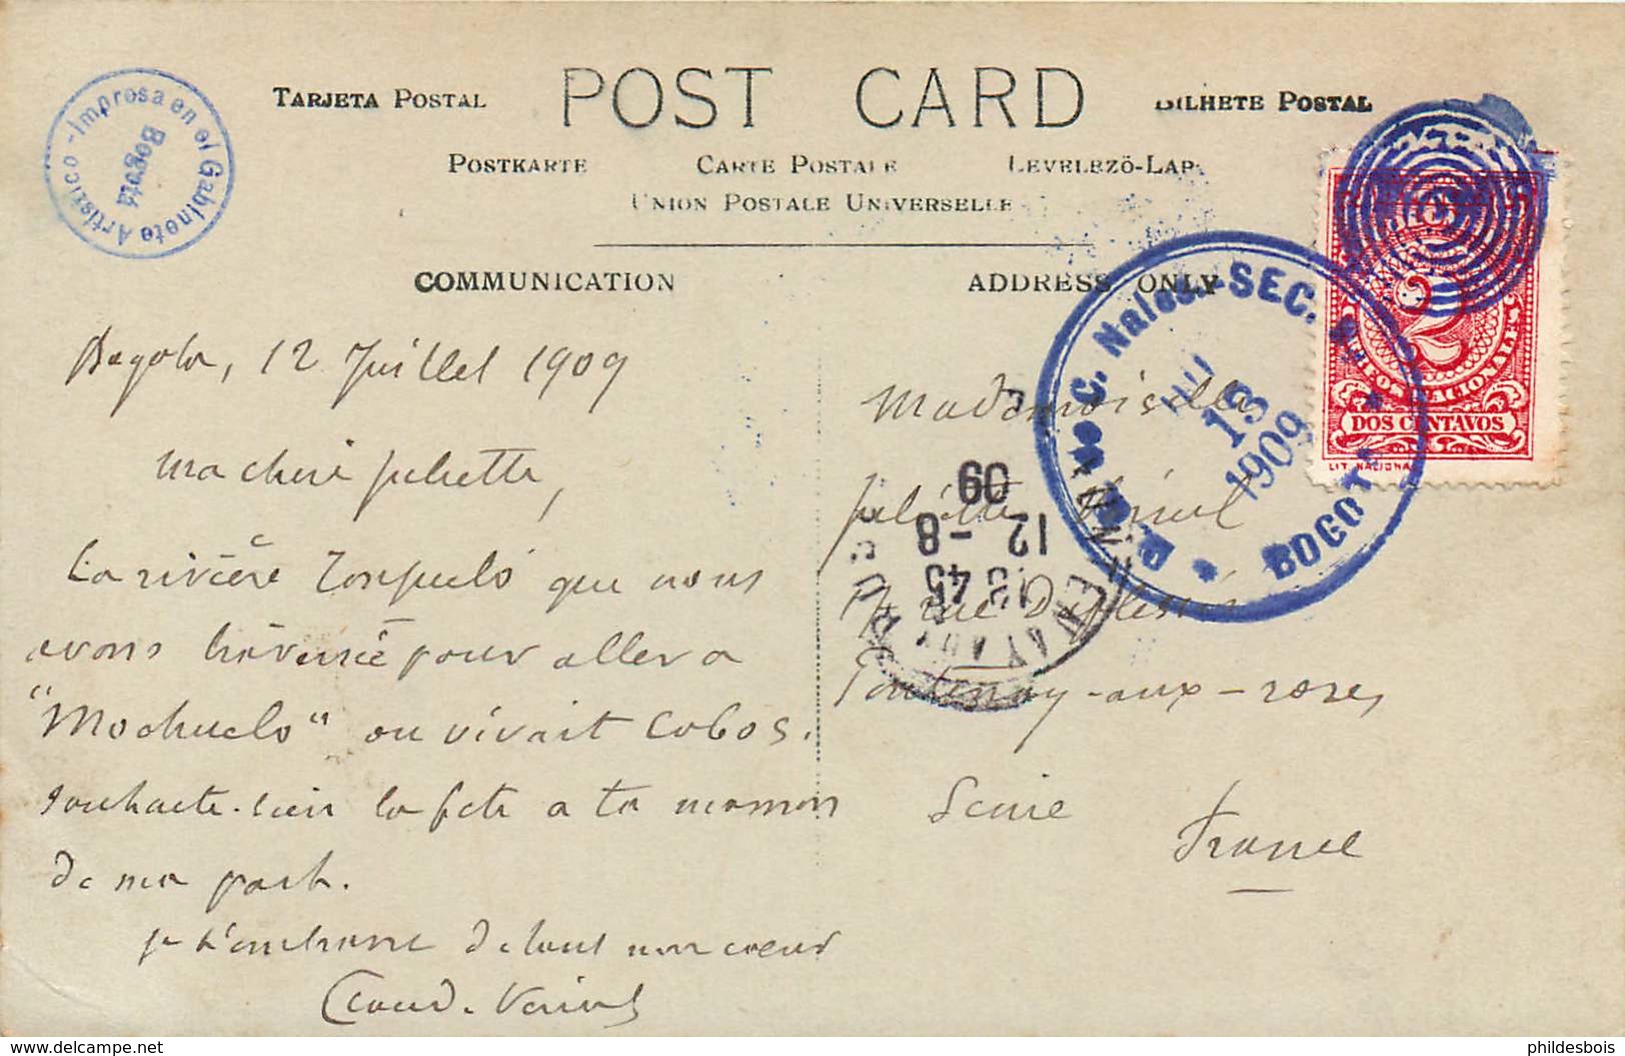 Impresa en el Gabinete Artistico -
Bogotá
TARJETA POSTAL
POST CARD
BILHETE POSTAL
POSTKARTE
CARTE POSTALE
LEVELEZÖ-LAP
UNION POSTALE UNIVERSELLE
COMMUNICATION
ADDRESS ONLY
Bogota, 12 Juillet 1909
ma chère Juliette,
La rivière que nous
avons traversée pour aller a
"Mochuelo" ou vivait Cobos.
souhaite-bien la fête a ta maman
de ma part.
je t'embrasse de tout mon coeur
Mademoiselle
Juliette
rue Duplessis
Fontenay-aux-roses
Seine
France
C. Nales.-SEC.
BOGOTA
JUL
13
1909
FONTENAY AUX
18 45
12 -8
09
2
CORREOS NACIONALES
DOS CENTAVOS
LIT. NACIONAL
delcampe.net
phildesbois